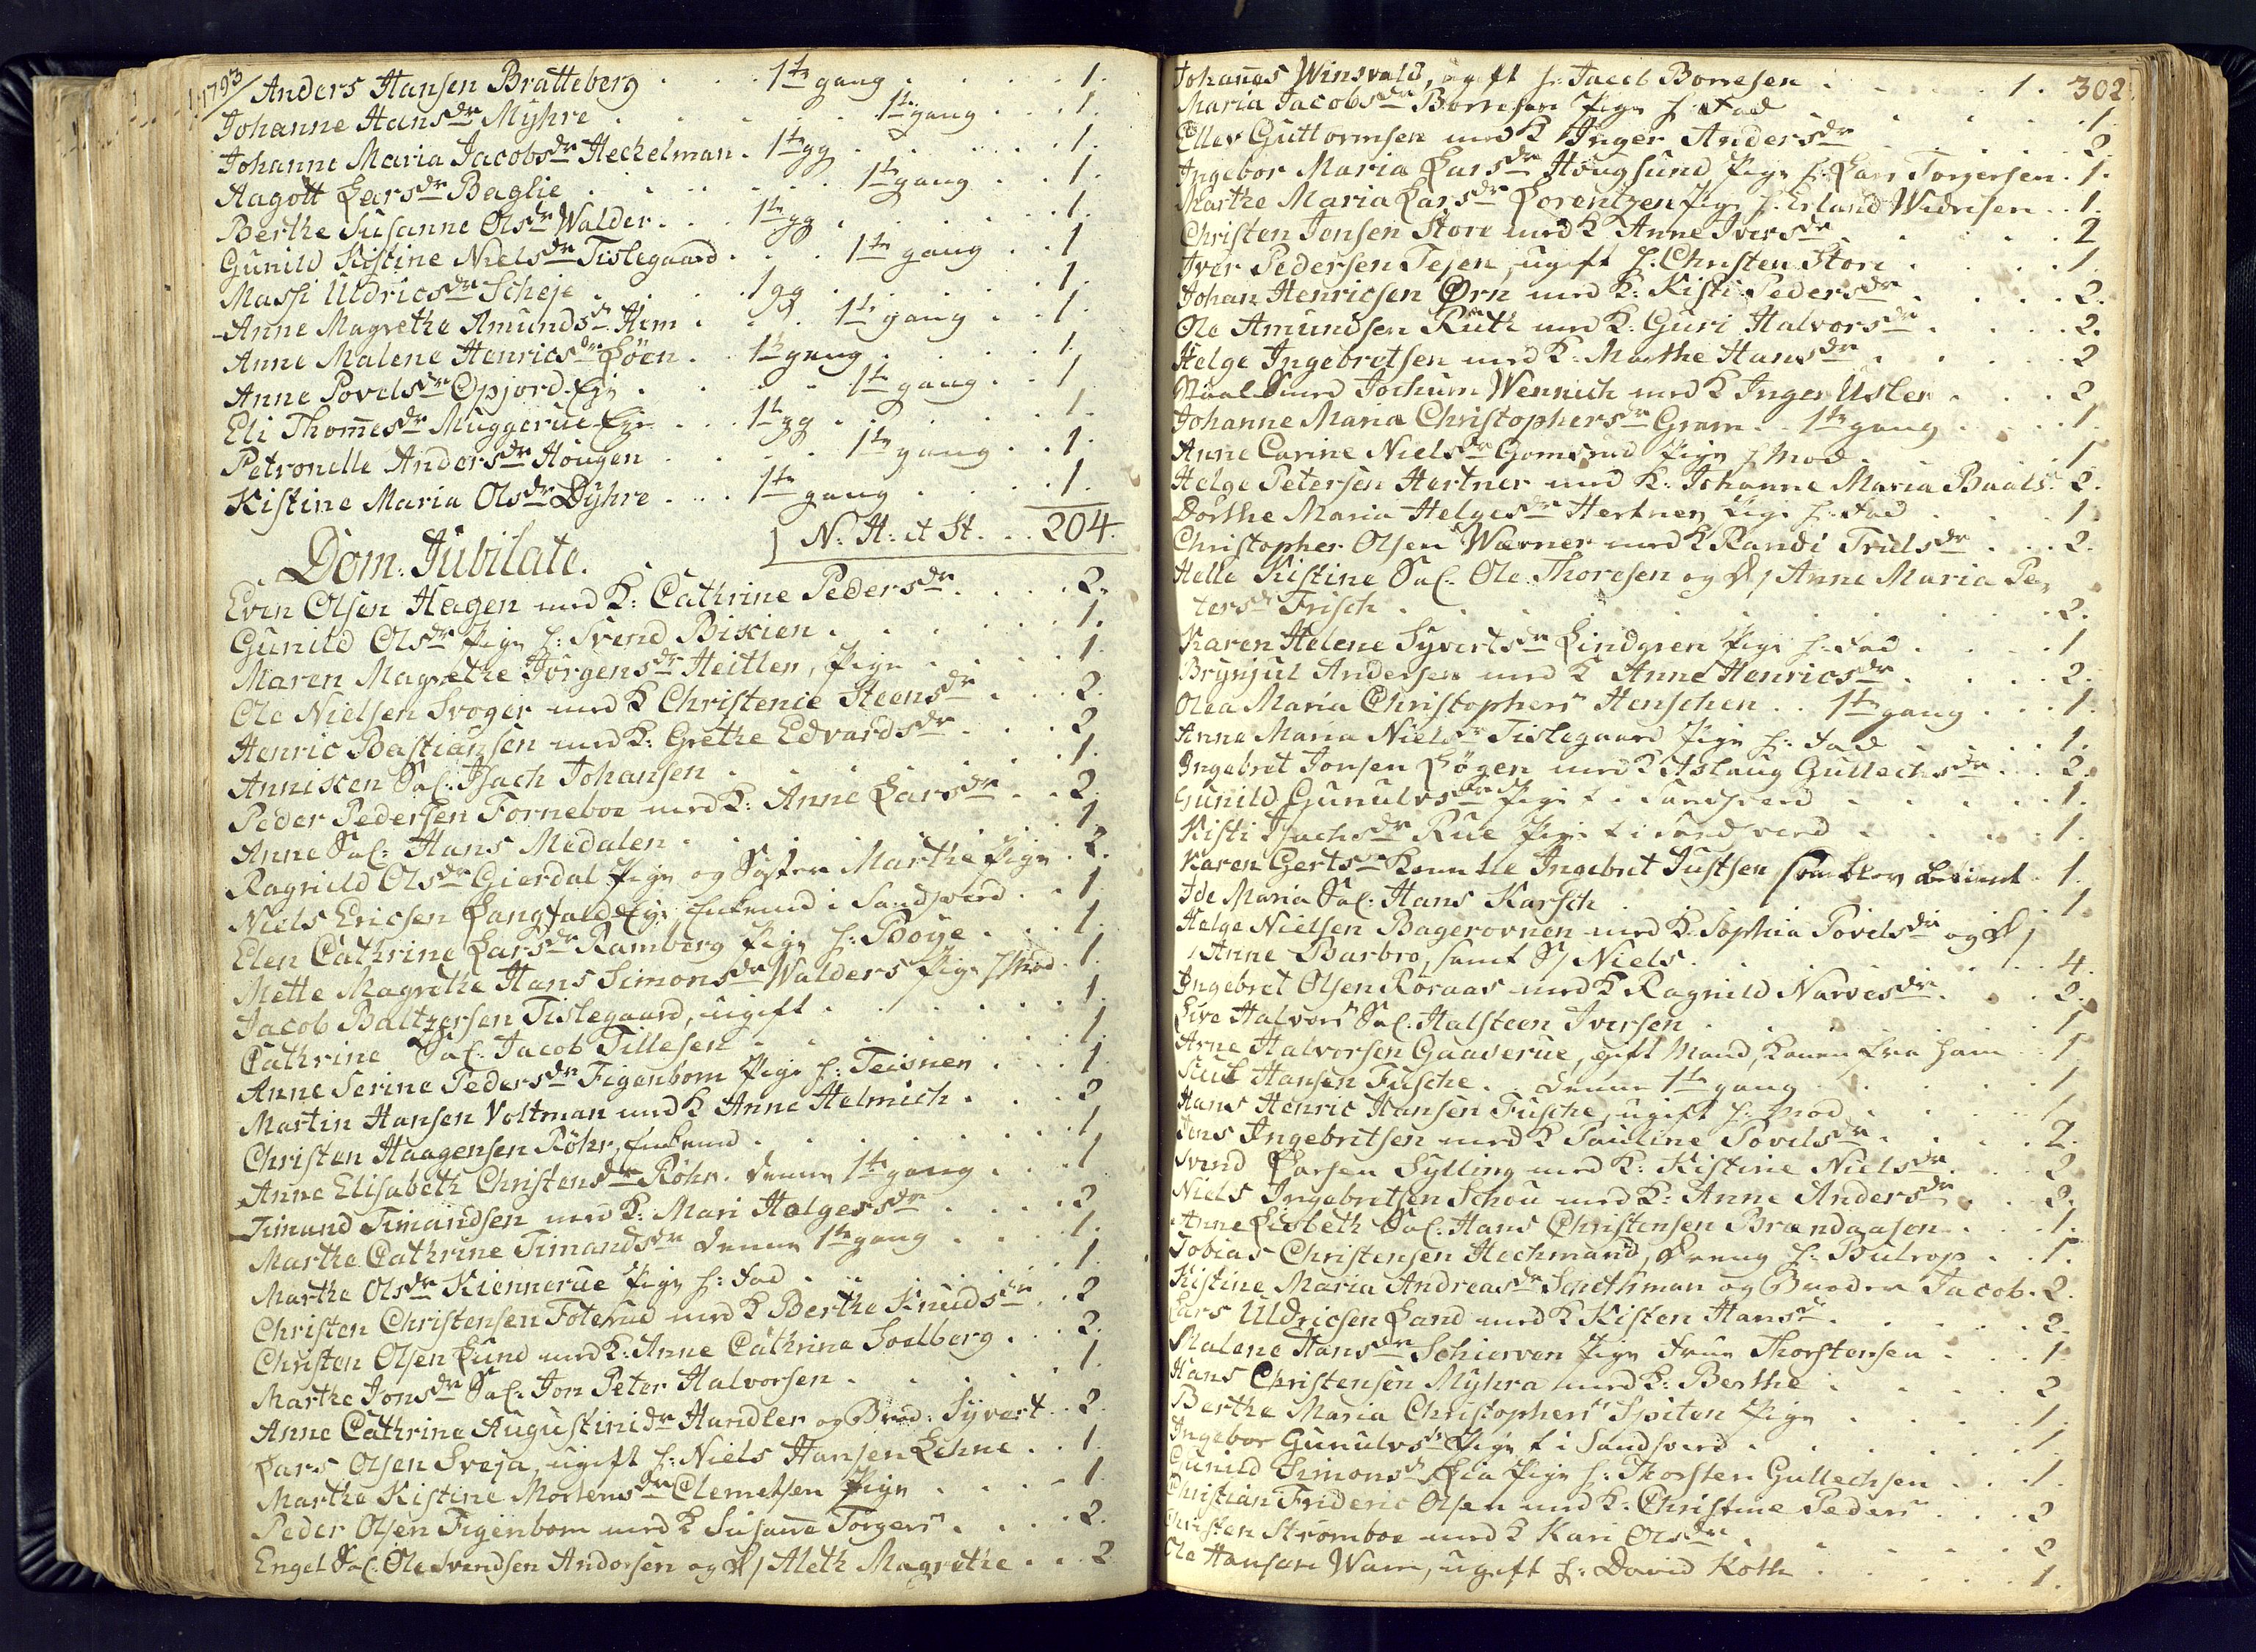 1793/ Anders Hansen Bratteberg . . . 1ste gang . . . . 1.
Johanne Hansdr Myhre . . . . . 1ste gang . . . 1.
Johanne Maria Jacobsdr Heckelman . 1ste gg . . . . . 1.
Aagott Larsdr Baglie . . . . . . 1ste gang . . . 1.
Berthe Susanne Olsdr Walder . . . 1ste gg . . . . . 1.
Gunild Kistine Nielsdr Tislegaard . . . 1ste gang . . 1
Massi Uldricsdr Scheje . . . . 1 gg . . . . . 1.
Anne Magrethe Amundsdr Hem . . . 1ste gang . . 1.
Anne Malene Henricsdr Løen . . 1ste gang . . . . 1.
Anne Povelsdr Opjord Eje . . . . . 1ste gang . . 1
Eli Thommesdr Muggerue Eje . . . 1ste gg . . . . 1.
Petronelle Andersdr Hougen . . . . 1ste gang . . 1.
Kistine Maria Olsdr Dyhre . . . 1ste gang . . . . 1.
N. H. et St. . . 204.
Dom. Jubilate.
Even Olsen Hagen med K: Cathrine Pedersdr . . . . 2.
Gunild Olsdr Pige h: Svend Bixien . . . . . . 1.
Maren Magrethe Jørgensdr Heitler, Pige . . . . . 1
Ole Nielsen Svoger med K Christenie Steensdr . . . 2.
Henric Bastiansen med K: Grethe Edvardsdr . . . 2
Annixen Sal. Isach Johansen . . . . . . . 1.
Peder Pedersen Forneboe med K: Anne Larsdr . . 2.
Anne Sal: Hans Medalen . . . . . . . . 1.
Ragnild Olsdr Gierdal Pige og Søster Marthe Pige . 2.
Niels Ericsen Langfald Eje, Enkemd i Sandsverd . . 1
Elen Cathrine Larsdr Ramberg Pige h: Bøye . . . 1.
Mette Magrethe Hans Simonsdr Walders Pige h Mod . 1.
Jacob Baltzersen Tislegaard, ugift . . . . . . 1.
Cathrine Sal. Jacob Tillesen . . . . . . . 1.
Anne Serine Pedersdr Figenbom Pige h: Teisner . . . 1
Martin Hansen Voltman med K Anne Helmich . . . 2
Christen Haagensen Røhr, Enkemd . . . . . . . 1
Anne Elisabeth Christensdr Røhr. denne 1ste gang . . . 1
Timand Timandsen med K: Mari Helgesdr . . . . 2
Marthe Cathrine Timandsdr denne 1ste gang . . . . 1.
Marthe Olsdr Kiennerue Pige h: Fad . . . . . . 1.
Christen Christensen Foterud med K Berthe Knudsdr . . 2
Christen Olsen Lund med K: Anne Cathrine Soelberg . . . 2.
Marthe Jonsdr Sal. Jon Peter Halvorsen . . . . . 1.
Anne Cathrine Augustinidr Handler og Brod: Syvert . . 2
Lars Olsen Sveja, ugift h: Niels Hansen Lehne . . . 1
Marthe Kistine Mortensdr Clemetsen Pige . . . . 1
Peder Olsen Figenbom med K Susanne Torgersdr . . . . 2.
Engel Sal. Ole Svendsen Andorsen og D/ Aleth Magrethe . . . 2
302.
Johannes Winsvald, ugift h: Jacob Borresen . . . . 1.
Maria Jacobsdr Borresen Pige h: Fad . . . . . 1
Ellev Guttormsen med K Inger Andersdr . . . . . 2
Ingebor Maria Larsdr Hougsund Pige h: Lars Torgersen . 1.
Marthe Maria Larsdr Lorentzen Pige h: Erland Widricsen . . 1.
Christen Jensen Store med K Anne Iversdr . . . . . . 2
Iver Pedersen Tesen, ugift h: Christen Store . . . . 1.
Johan Henricsen Ørn med K: Kisti Pedersdr . . . . 2.
Ole Amundsen Ruth med K: Guri Halvorsdr . . . . . 2.
Helge Ingebretsen med K: Marthe Hansdr . . . . . 2
Naal Smed Jochum Wennich med K Inger Usler . . . 2
Johanne Maria Christophersdr Gram . . 1ste gang . . . . 1.
Anne Carine Nielsdr Gomsrud Pige h Mod . . . . 1
Helge Petersen Hertner med K: Johanne Maria Baals. 2.
Dorthe Maria Helgesdr Hertner Pige h: Fad . . . . 1
Christopher Olsen Wærner med K Randi Trulsdr . . . 2.
Helle Kistine Sal. Ole Thoresen og D/ Anne Maria Pe-
tersdr Frisch . . . . . . . . . . 2.
Karen Helene Syvertsdr Lindgren Pige h: Fad . . . . 1
Brynjul Andersen med K Anne Henricsdr . . . . 2.
Olea Maria Christophersdr Henschen . . 1ste gang . . . 1.
Anne Maria Nielsdr Tislegaard Pige h: Fad . . . 1.
Ingebret Jonsen Løgen med K Aslaug Gullechsdr . . 2.
Gunild Gunulvsdr Pige t i Sandsverd . . . . . 1.
Kisti Isachsdr Rue Pige t i Sandsverd . . . . 1.
Karen Gertsdr Ingebret Justsen som blev betient . 1.
Ide Maria Sal: Hans Karsch . . . . . . . 1.
Helge Nielsen Bagerovnen med K: Sophia Povelsdr og D/
Anne Barbro, samt S/ Niels . . . . . . 4.
Ingebret Olsen Røraas med K Ragnild Narvesdr . . . 2.
Live Halvorsdr Sal. Halsteen Iversen . . . . . . 1
Arne Halvorsen Gaaserue, gift Mand, Konen fra ham . . 1
Hansen Fusche . . denne 1ste gang . . . . . 1
Hans Henric Hansen Fusche, ugift h: Mod . . . . 1
Jens Ingebretsen med K Pauline Povelsdr . . . . 2.
Svend Larsen Sylling med K: Kistine Nielsdr . . . 2
Niels Ingebretsen Schou med K: Anne Andersdr . . 2.
Anne Lisbeth Sal. Hans Christensen Brændaasen . . . 1.
Tobias Christensen Heckmand, Dreng h: Butrop . . 1.
Kistine Maria Andreasdr Smethman og Broder Jacob. 2.
Lars Uldricsen Land med K Kisten Hansdr . . . . . 2.
Malene Hansdr Schierven Pige Frue Thorstensen . . . 1.
Hans Christensen Myhra med K: Berthe . . . . . 2
Berthe Maria Christophersdr Spiten Pige . . . . . 1.
Ingebor Gunulvsdr Pige t i Sandsverd . . . . . 1
Gunild Simonsdr Lia Pige h: Thorsten Gullechsen . . . 1.
Christian Frideric Olsen med K: Christine Pedersdr . . . 2
Christen Strømboe med K Kari Olsdr . . . . . . 2
Ole Hansen Wam, ugift h: David Koth . . . . . 1.